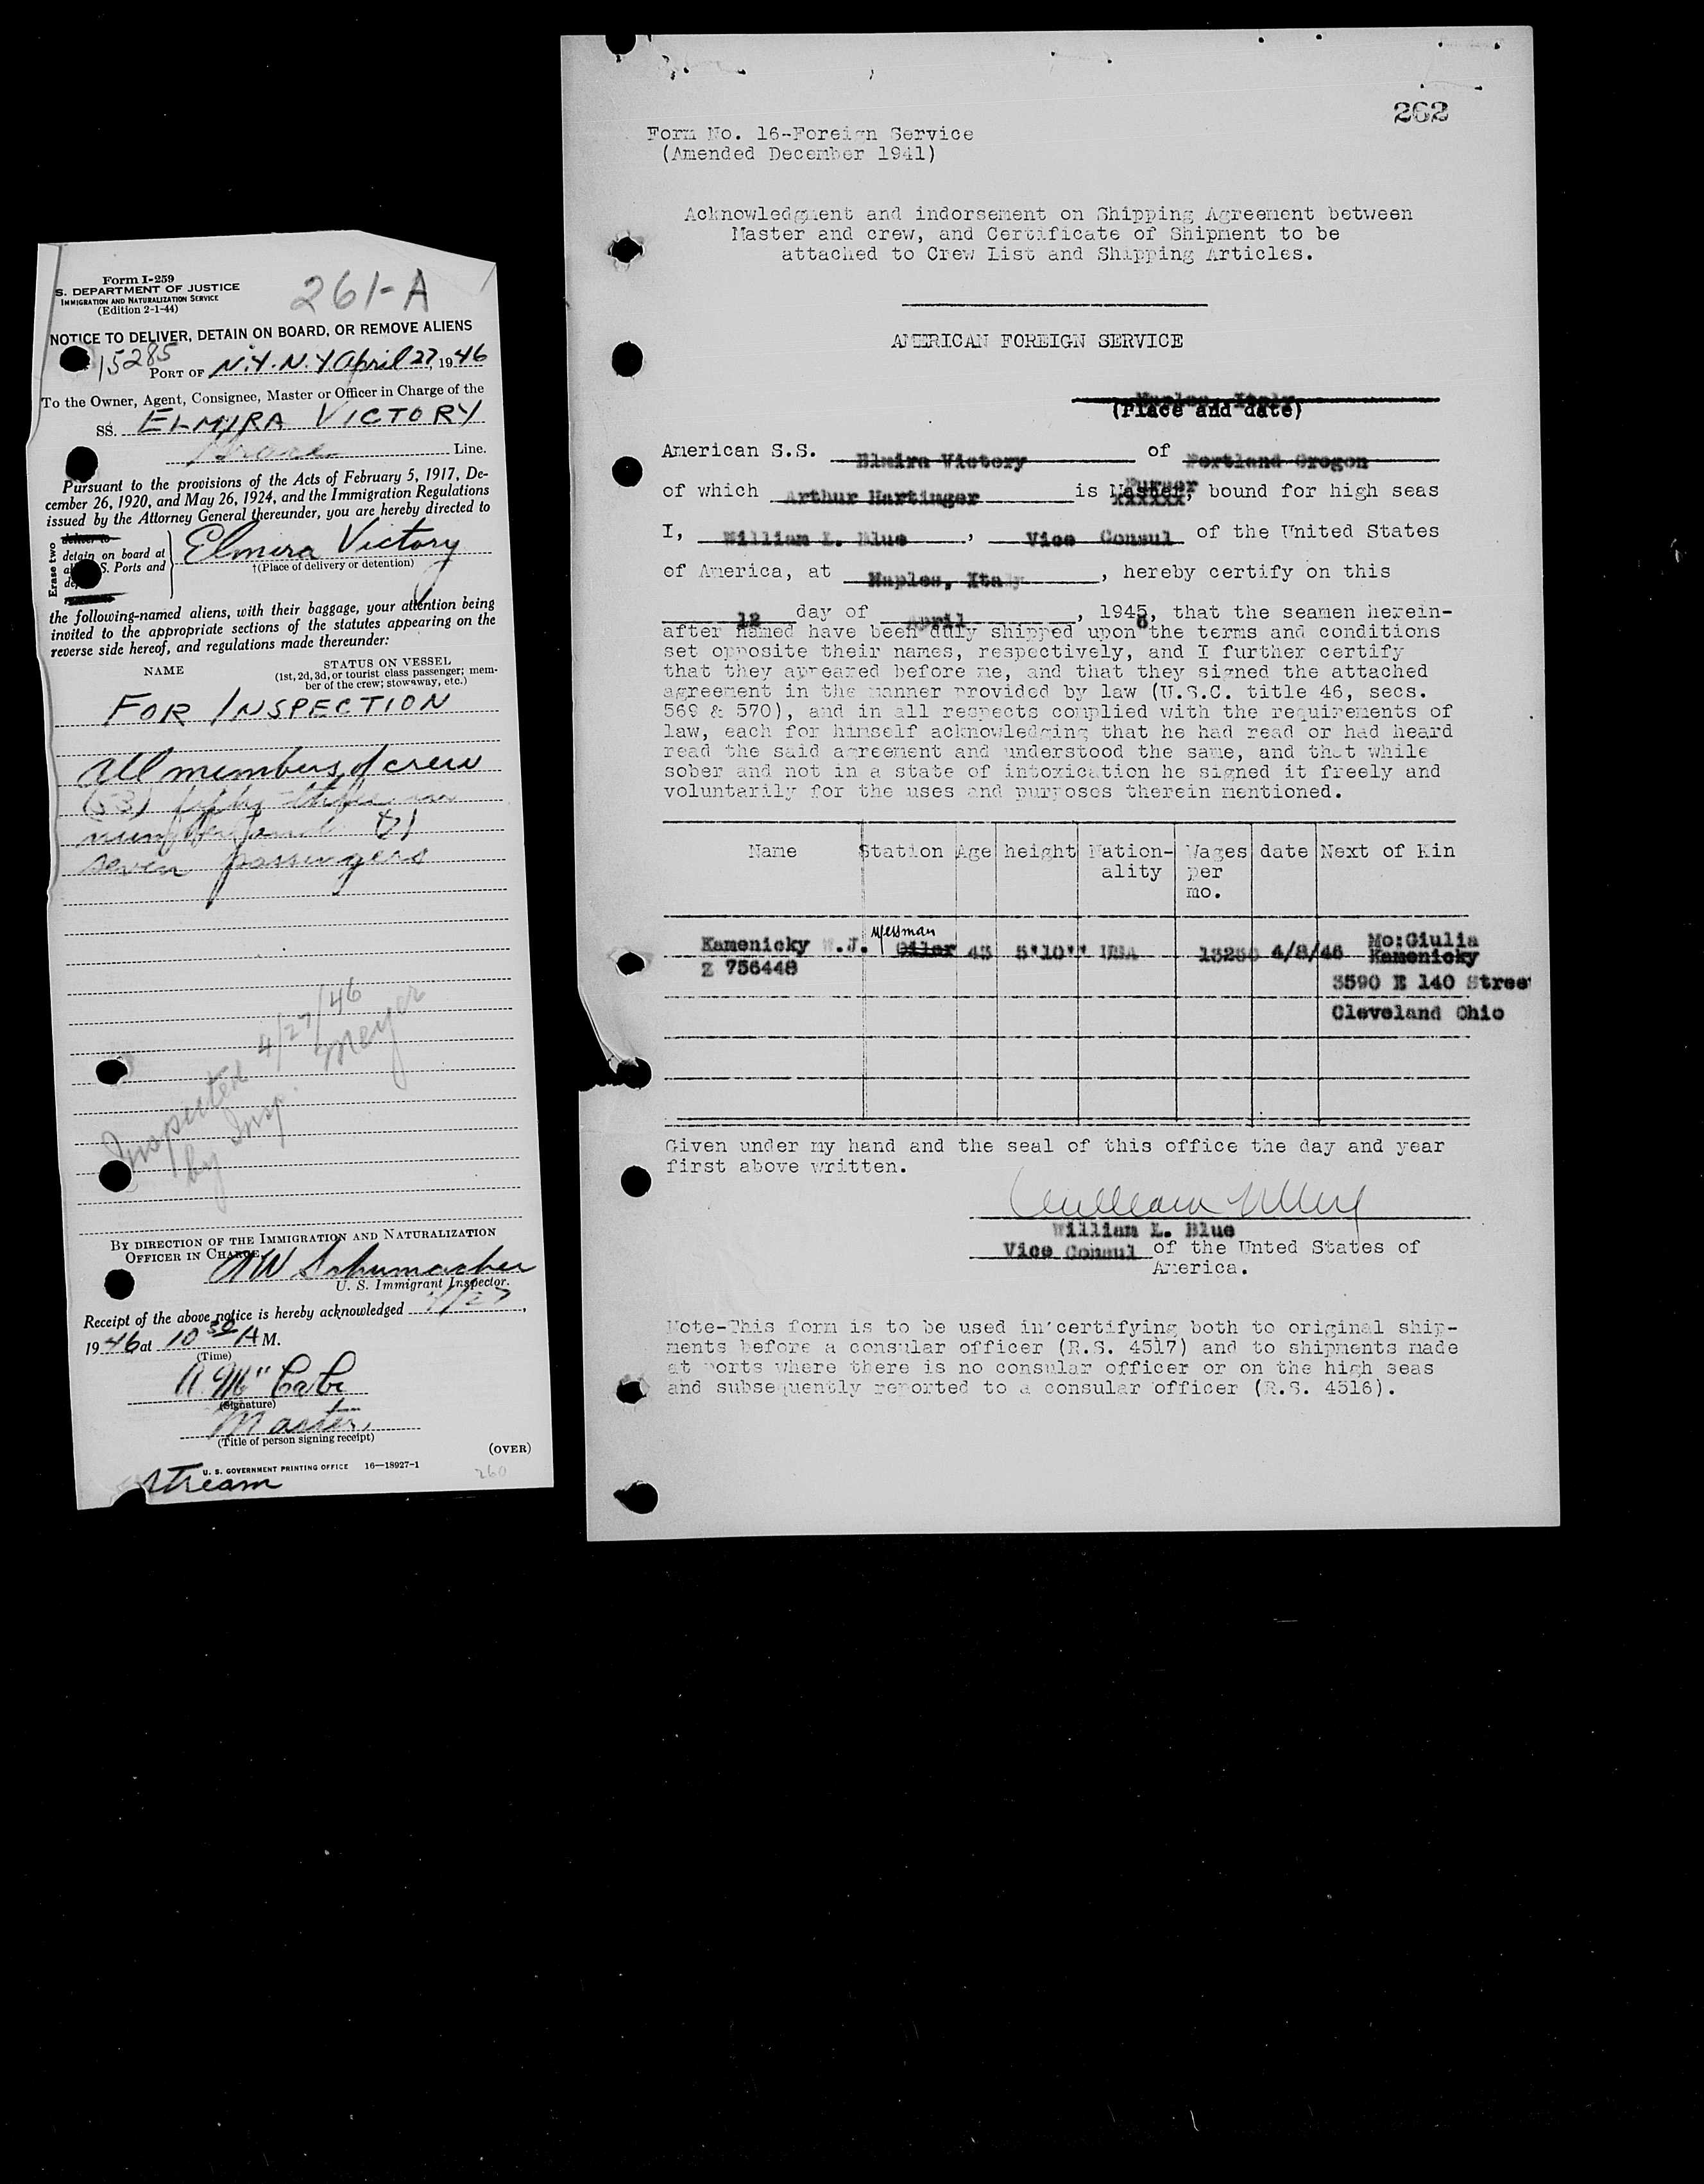 Form I-259
S. DEPARTMENT OF JUSTICE
IMMIGRATION AND NATURALIZATION SERVICE
(Edition 2-1-44)
261-A
NOTICE TO DELIVER, DETAIN ON BOARD, OR REMOVE ALIENS
15285
PORT OF N.Y. N.Y April 27, 1946
To the Owner, Agent, Consignee, Master or Officer in Charge of the
SS. ELMIRA VICTORY
Line.
Pursuant to the provisions of the Acts of February 5, 1917, De-
cember 26, 1920, and May 26, 1924, and the Immigration Regulations
issued by the Attorney General thereunder, you are hereby directed to
Erase two
deliver to
detain on board at
S. Ports and
Elmira Victory
†(Place of delivery or detention)
the following-named aliens, with their baggage, your attention being
invited to the appropriate sections of the statutes appearing on the
reverse side hereof, and regulations made thereunder:
NAME
STATUS ON VESSEL
(1st, 2d, 3d, or tourist class passenger; mem-
ber of the crew; stowaway, etc.)
FOR INSPECTION
All members of crew
(53) fifty three in
number and (7)
seven passengers
Inspected 4/27/46
by Insp. Meyer
BY DIRECTION OF THE IMMIGRATION AND NATURALIZATION
OFFICER IN CHARGE
Schumacher
U. S. Immigrant Inspector.
Receipt of the above notice is hereby acknowledged 4/27,
1946 at 10 30 A M.
(Time)
A. McCabe
(Signature)
Master
(Title of person signing receipt)
(OVER)
U. S. GOVERNMENT PRINTING OFFICE 16—18927-1
260
Stream
262
Form No. 16-Foreign Service
(Amended December 1941)
Acknowledgment and indorsement on Shipping Agreement between
Master and crew, and Certificate of Shipment to be
attached to Crew List and Shipping Articles.
AMERICAN FOREIGN SERVICE
Naples, Italy
(Place and date)
American S.S. Elmira Victory of Portland Oregon
of which Arthur Hartinger is Master, Purser bound for high seas
I, William L. Blue, Vice Consul of the United States
of America, at Naples, Italy, hereby certify on this
12 day of April, 1946, that the seamen herein-
after named have been duly shipped upon the terms and conditions
set opposite their names, respectively, and I further certify
that they appeared before me, and that they signed the attached
agreement in the manner provided by law (U.S.C. title 46, secs.
569 & 570), and in all respects complied with the requirements of
law, each for himself acknowledging that he had read or had heard
read the said agreement and understood the same, and that while
sober and not in a state of intoxication he signed it freely and
voluntarily for the uses and purposes therein mentioned.
Name Station Age height Nation- Wages date Next of Kin
ality per
mo.
Messman
Kamenicky W.J. Oiler 43 5'10'' USA 13250 4/8/46 Mo:Giulia
Kamenicky
Z 756448
3590 E 140 Stree
Cleveland Ohio
Given under my hand and the seal of this office the day and year
first above written.
William L. Blue
William L. Blue
Vice Consul of the Unted States of
America.
Note-This form is to be used in certifying both to original ship-
ments before a consular officer (R.S. 4517) and to shipments made
at ports where there is no consular officer or on the high seas
and subsequently reported to a consular officer (R.S. 4516).